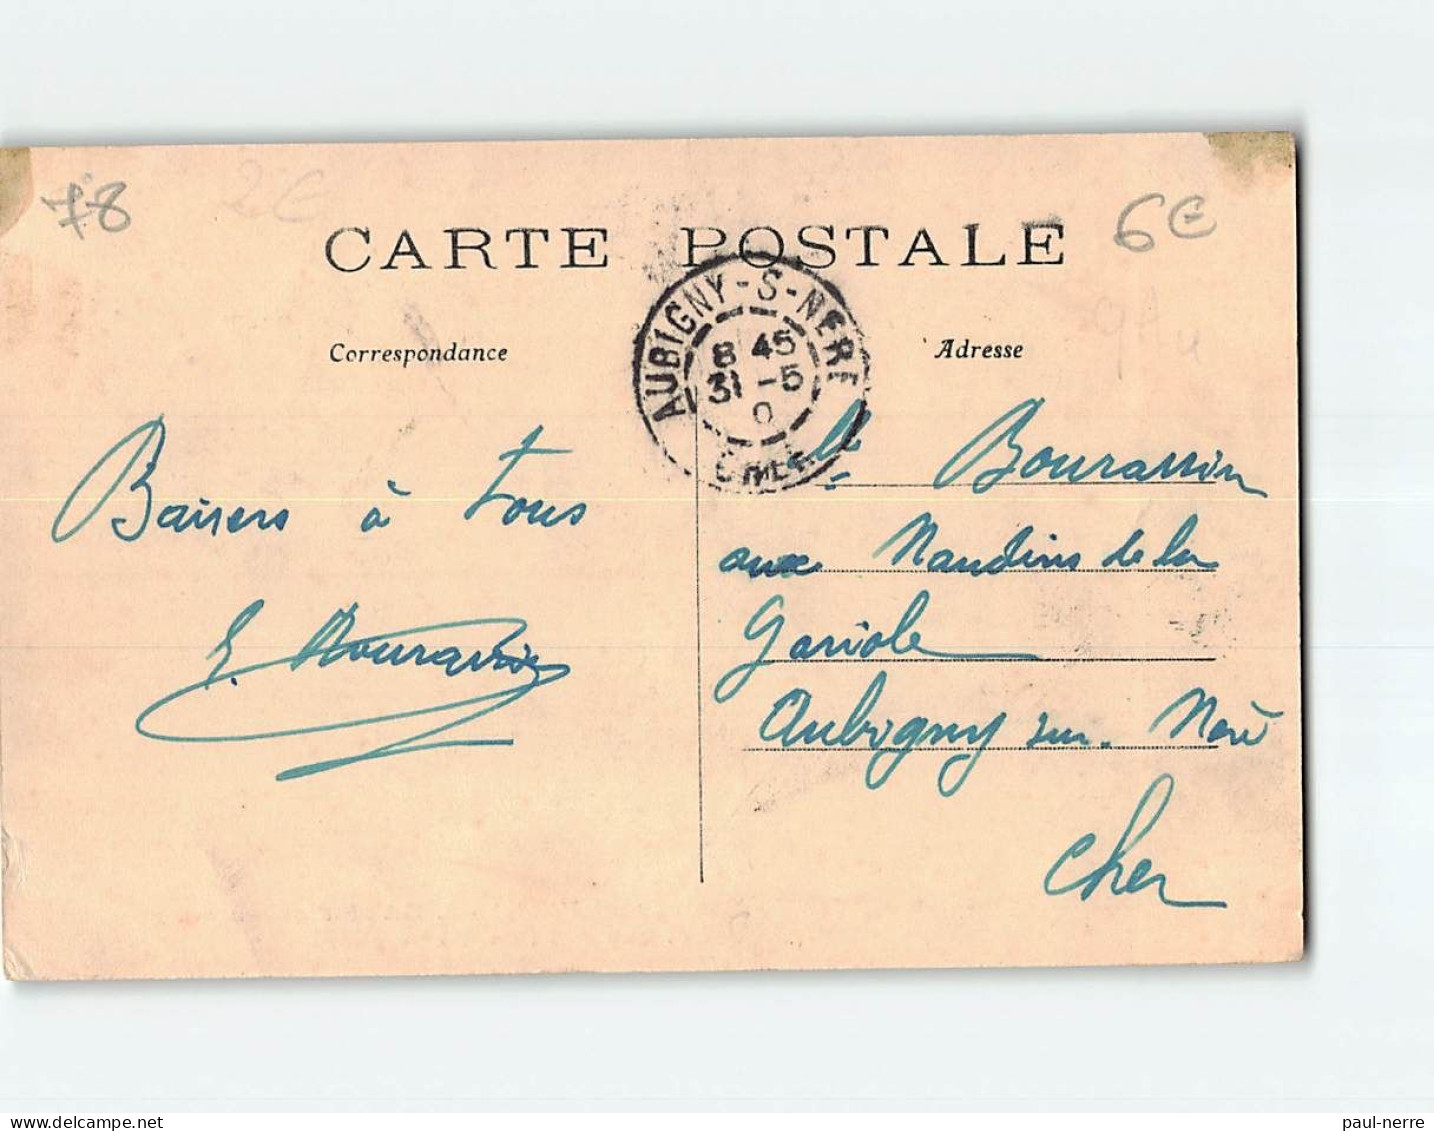 78
2€
6€
CARTE POSTALE
AUBIGNY-S-NERE
8 45
31 -5
0
CHER
Correspondance
Adresse
Baisers à tous
E. Bourassin
Bourassin
aux Naudins de la
Gariole
Aubigny sur Nère
Cher
paul-nerre